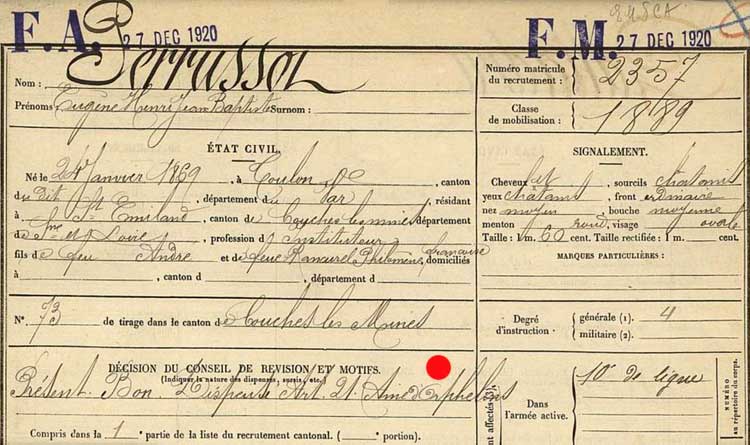 F. A. 27 DEC 1920
F. M. 27 DEC 1920
Nom : Perrussol
Prénoms : Eugène Henri Jean Baptiste Surnom :
Numéro matricule du recrutement : 2357
Classe de mobilisation : 1889
ÉTAT CIVIL.
Né le 24 Janvier 1869, à Toulon, canton
du dit, département du Var, résidant
à St Emiland, canton de Couches les mines, département
de Sne et Loire, profession d Instituteur
fils de feu André et de feue Philomène Françoise, domiciliés
à , canton d , département d
N° 73 de tirage dans le canton de Couches les Mines
DÉCISION DU CONSEIL DE REVISION ET MOTIFS.
(Indiquer la nature des dispenses, sursis, etc.)
Présent. Bon. Dispensé Art. 21. Ainé d'orphelins
Compris dans la 1 partie de la liste du recrutement cantonal. ( portion).
SIGNALEMENT.
Cheveux et sourcils châtains
yeux châtains, front ordinaire
nez moyen, bouche moyenne
menton rond, visage ovale
Taille : 1 m. 60 cent. Taille rectifiée : 1 m. cent.
MARQUES PARTICULIÈRES :
Degré d'instruction . générale (1). 4
militaire (2).
Dans l'armée active. 10e de ligne
NUMÉRO
au répertoire du corps.